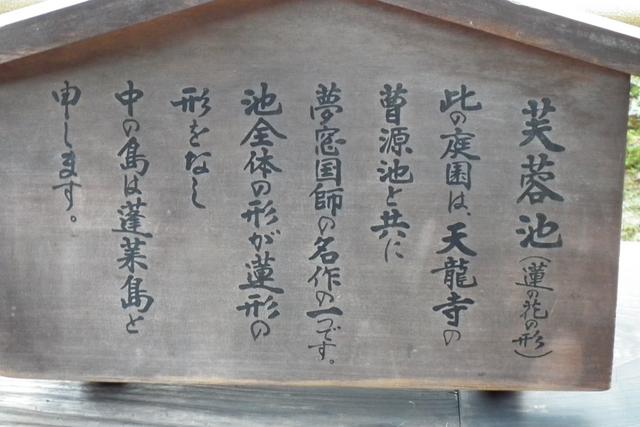 芙蓉池(蓮の花の形)
此の庭園は、天龍寺の
曹源池と共に
夢窓国師の名作の一つです。
池全体の形が蓮形の
形をなし
中の島は蓬莱島と
申します。